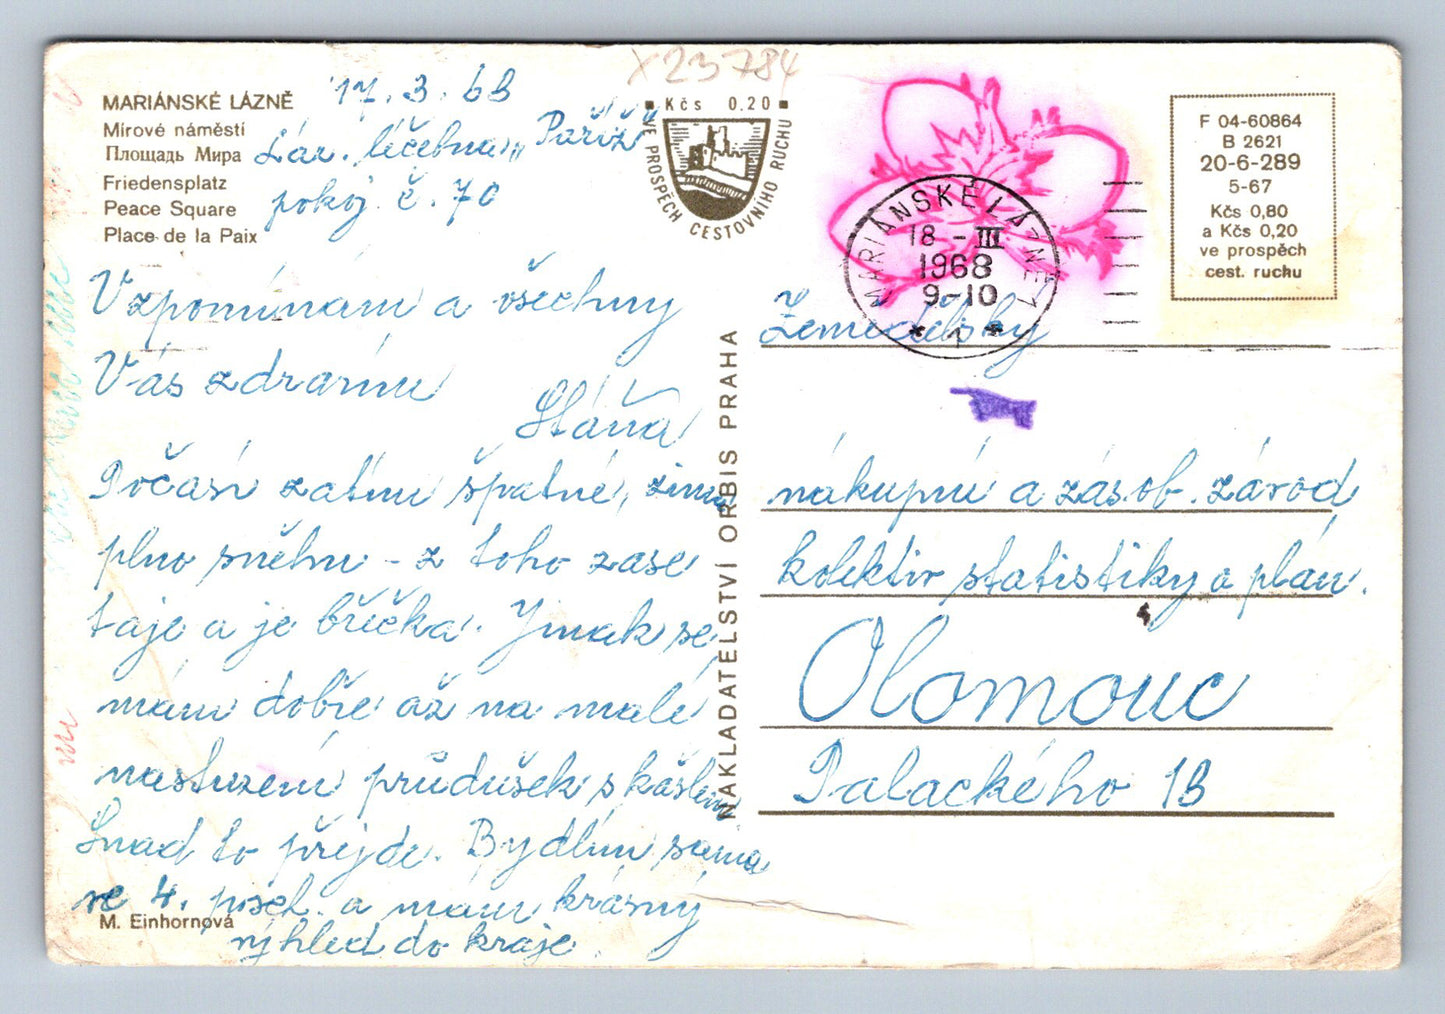 X23784
MARIÁNSKÉ LÁZNĚ
Mírové náměstí
Площадь Мира
Friedensplatz
Peace Square
Place de la Paix
17. 3. 68
Láz. léčebna „Paříž"
pokoj č. 70
Vzpomínám a všechny
Vás zdravím
Stáňa
Počasí zatím špatné, zima
plno sněhu - z toho zase
taje a je břečka. Jinak se
mám dobře až na malé
nastuzení průdušek s kašlem
Snad to přejde. Bydlím sama
ve 4. posch. a mám krásný
výhled do kraje.
M. Einhornová
Kčs 0.20
VE PROSPĚCH CESTOVNÍHO RUCHU
NAKLADATELSTVÍ ORBIS PRAHA
MARIÁNSKÉ LÁZNĚ 1
18 - III
1968
9-10
* 1 *
F 04-60864
B 2621
20-6-289
5-67
Kčs 0,80
a Kčs 0,20
ve prospěch
cest. ruchu
Zemědělský
nákupní a zásob. závod
kolektiv statistiky a plán.
Olomouc
Palackého 1B